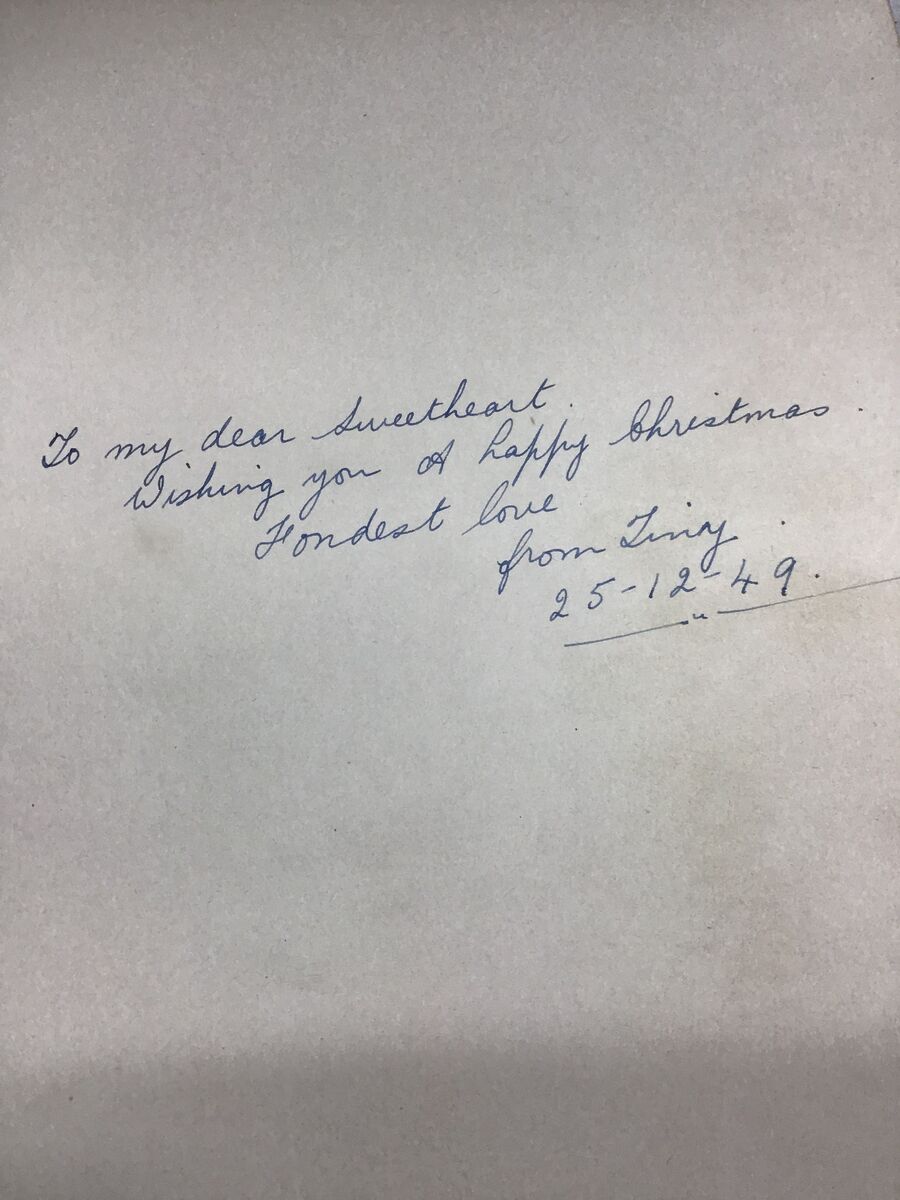 To my dear Sweetheart.
Wishing you A happy Christmas.
Fondest love
from Tiny.
25-12-49.